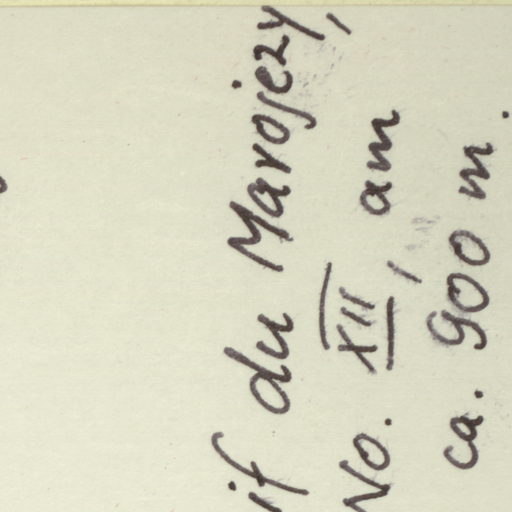 if du Marojezy,
No. XII, am
ca. 900 m.